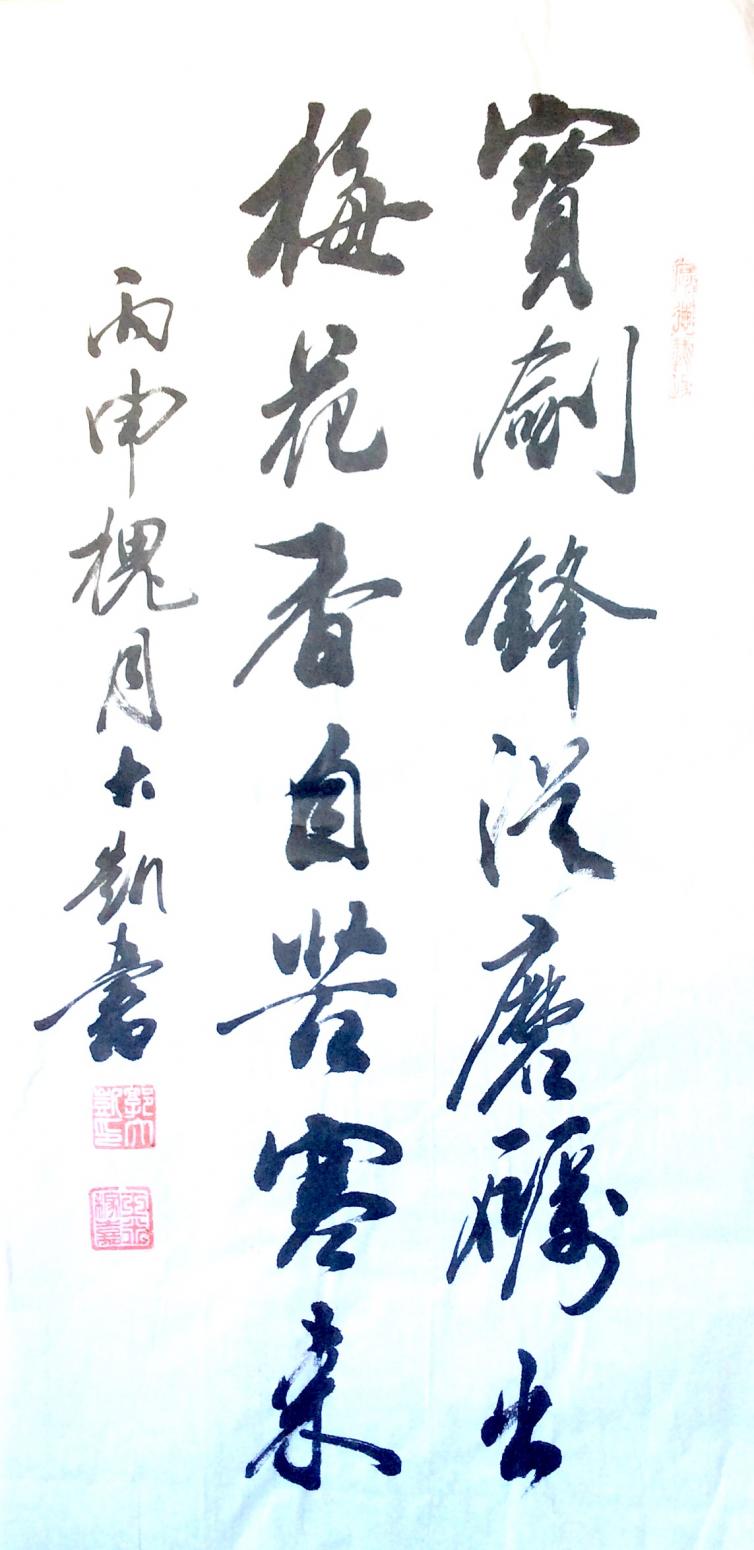 寶劍鋒從磨礪出
梅花香自苦寒來
丙申槐月大凱書